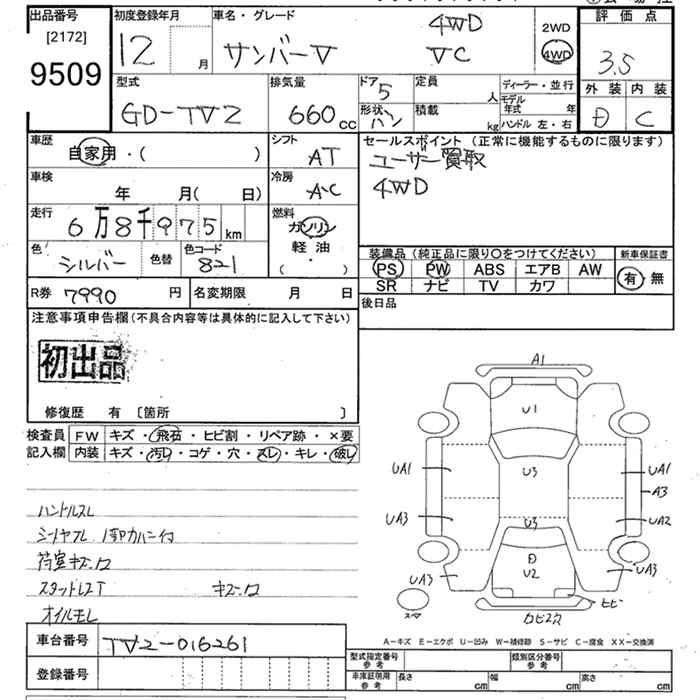 出品番号 初度登録年月 車名・グレード 4WD 2WD 評価点
[2172] 12 月 サンバーV VC 4WD 3.5
9509 型式 排気量 ドア 5 定員 人 ディーラー・並行 外装 内装
GD-TV2 660cc 形状 バン 積載 kg モデル年式 年 D C
ハンドル 左・右
車歴 自家用・( ) シフト AT セールスポイント (正常に機能するものに限ります)
車検 年 月( 日) 冷房 AC ユーザー買取
走行 6万8千975km 燃料 ガソリン 4WD
色 シルバー 色替 色コード 821 軽油 ・ ( )
装備品 (純正品に限り○をつけてください) 新車保証書
PS PW ABS エアB AW 有・無
SR ナビ TV カワ
R券 7990 円 名変期限 月 日 後日品
注意事項申告欄(不具合内容等は具体的に記入して下さい)
初出品
修復歴 有 [箇所 ]
検査員 FW キズ・飛石・ヒビ割・リペア跡・×要
記入欄 内装 キズ・汚レ・コゲ・穴・スレ・キレ・破レ
ハンドルスレ
荷室キズ・凹
キズ・凹
オイルモレ
A1
U1
UA1 U3 UA1
A3
UA3 U3 UA2
D
UA3 U2 UA3
スマ ヒビ
A-キズ E-エクボ U-凹み W-補修跡 S-サビ C-腐食 XX-交換済
車台番号 TV2-016261
登録番号
型式指定番号 参考 類別区分番号 参考
車庫証明用 参考 長さ cm 幅 cm 高さ cm